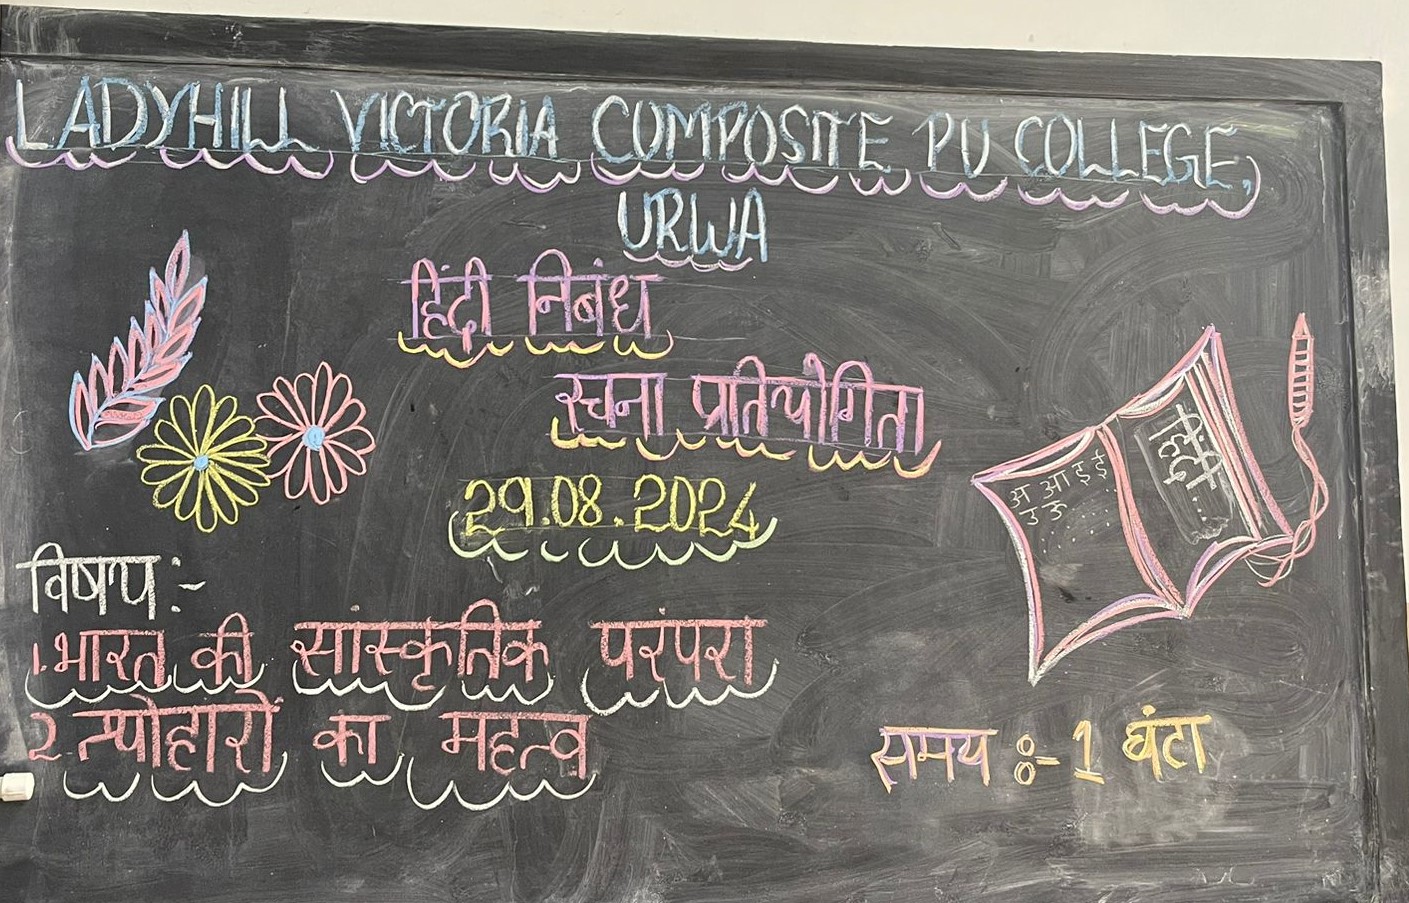 LADYHILL VICTORIA COMPOSITE PU COLLEGE,
URWA
हिंदी निबंध
रचना प्रतियोगिता
29.08.2024
अ आ इ ई
उ ऊ ......
हिंदी...
विषय:-
1.भारत की सांस्कृतिक परंपरा
2.त्योहारों का महत्व
समय :- 1 घंटा